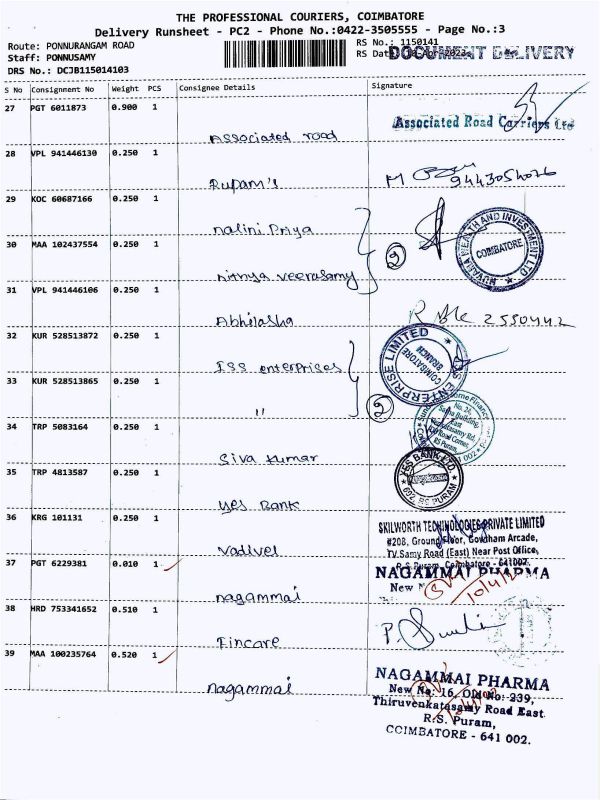 THE PROFESSIONAL COURIERS, COIMBATORE
Delivery Runsheet - PC2 - Phone No.:0422-3505555 - Page No.:3
Route: PONNURANGAM ROAD
Staff: PONNUSAMY
DRS No.: DCJB115014103
RS No.: 1150141
RS Date
DOCUMENT DELIVERY
S No Consignment No Weight PCS Consignee Details Signature
27 PGT 6011873 0.900 1
Associated road
Associated Road Carriers Ltd
28 VPL 941446130 0.250 1
Rupam's
9443054076
29 KOC 60687166 0.250 1
nalini Priya
30 MAA 102437554 0.250 1
nithya veerasamy
2
NUVAMA WEALTH AND INVESTMENT LTD
COIMBATORE
31 VPL 941446106 0.250 1
Abhilasha
2550442
32 KUR 528513872 0.250 1
ISS enterprises
33 KUR 528513865 0.250 1
"
2
ENTERPRISE LIMITED
COIMBATORE
BRANCH
34 TRP 5083164 0.250 1
Siva kumar
Home Finance
No. 24,
Building,
East
RS Puram,
35 TRP 4813587 0.250 1
yes Bank
YES BANK LTD.
692, RS PURAM
36 KRG 101131 0.250 1
Vadivel
SKILWORTH TECHNOLOGIES PRIVATE LIMITED
#208, Ground Floor, Gowtham Arcade,
TV.Samy Road (East) Near Post Office,
R.S. Puram, Coimbatore - 641002.
37 PGT 6229381 0.010 1
nagammai
NAGAMMAI PHARMA
New
38 HRD 753341652 0.510 1
Fincare
39 MAA 100235764 0.520 1
nagammai
NAGAMMAI PHARMA
New No. 16, Old No: 239,
Thiruvenkatasamy Road East
R.S. Puram,
COIMBATORE - 641 002.